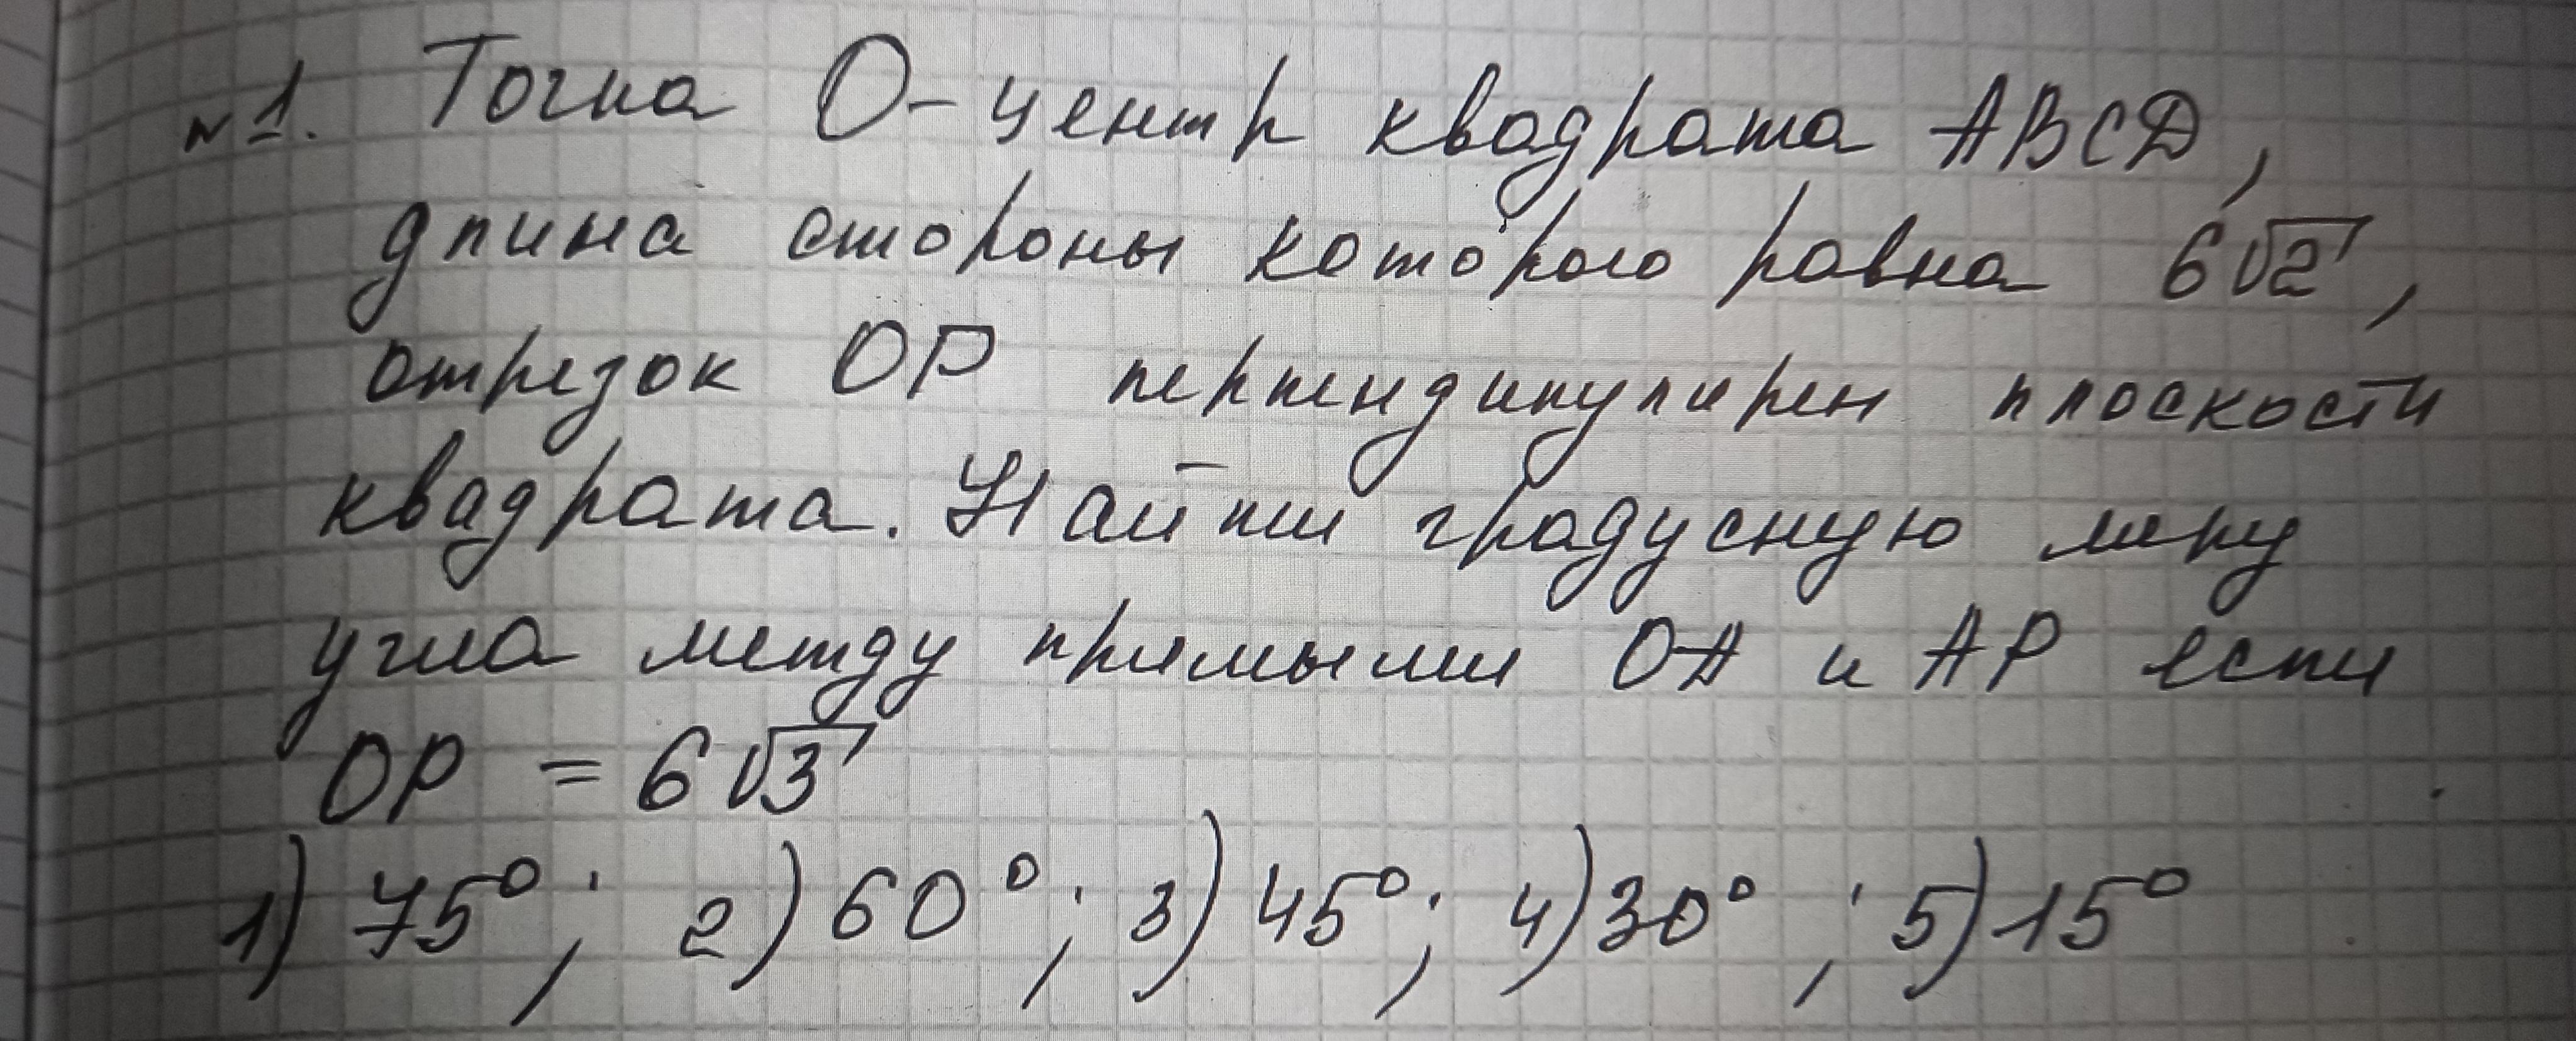 №1. Точка O - центр квадрата ABCD,
длина стороны которого равна 6√2,
отрезок OP перпендикулярен плоскости
квадрата. Найти градусную меру
угла между прямыми OA и AP если
OP = 6√3
1) 75°; 2) 60°; 3) 45°; 4) 30°; 5) 15°